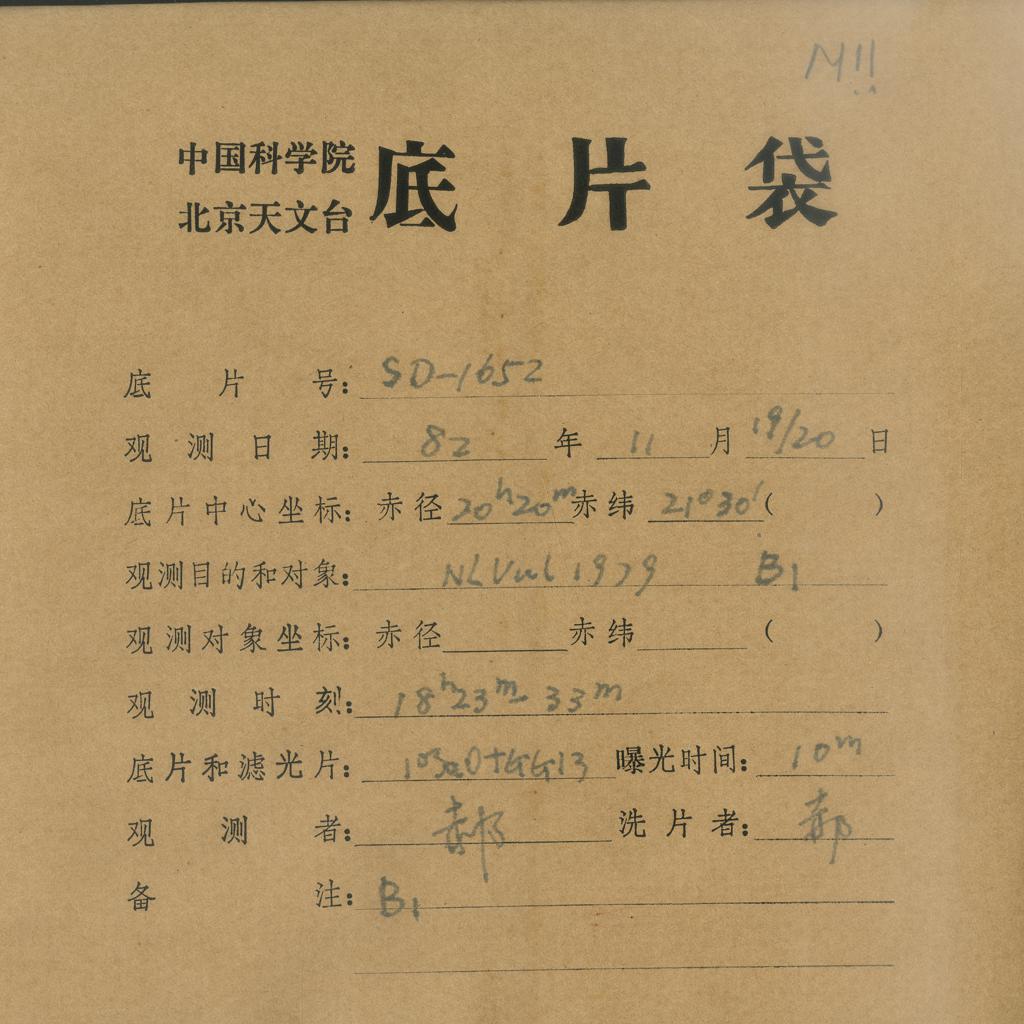 N11
中国科学院
北京天文台
底片袋
底片号: SD-1652
观测日期: 82 年 11 月 19/20 日
底片中心坐标: 赤径 20ʰ20ᵐ 赤纬 21°30′ ( )
观测目的和对象: NLVul 1979 B1
观测对象坐标: 赤径 赤纬 ( )
观测时刻: 18ʰ23ᵐ-33ᵐ
底片和滤光片: 103aO+GG13 曝光时间: 10ᵐ
观测者: 郝 洗片者: 郝
备注: B1